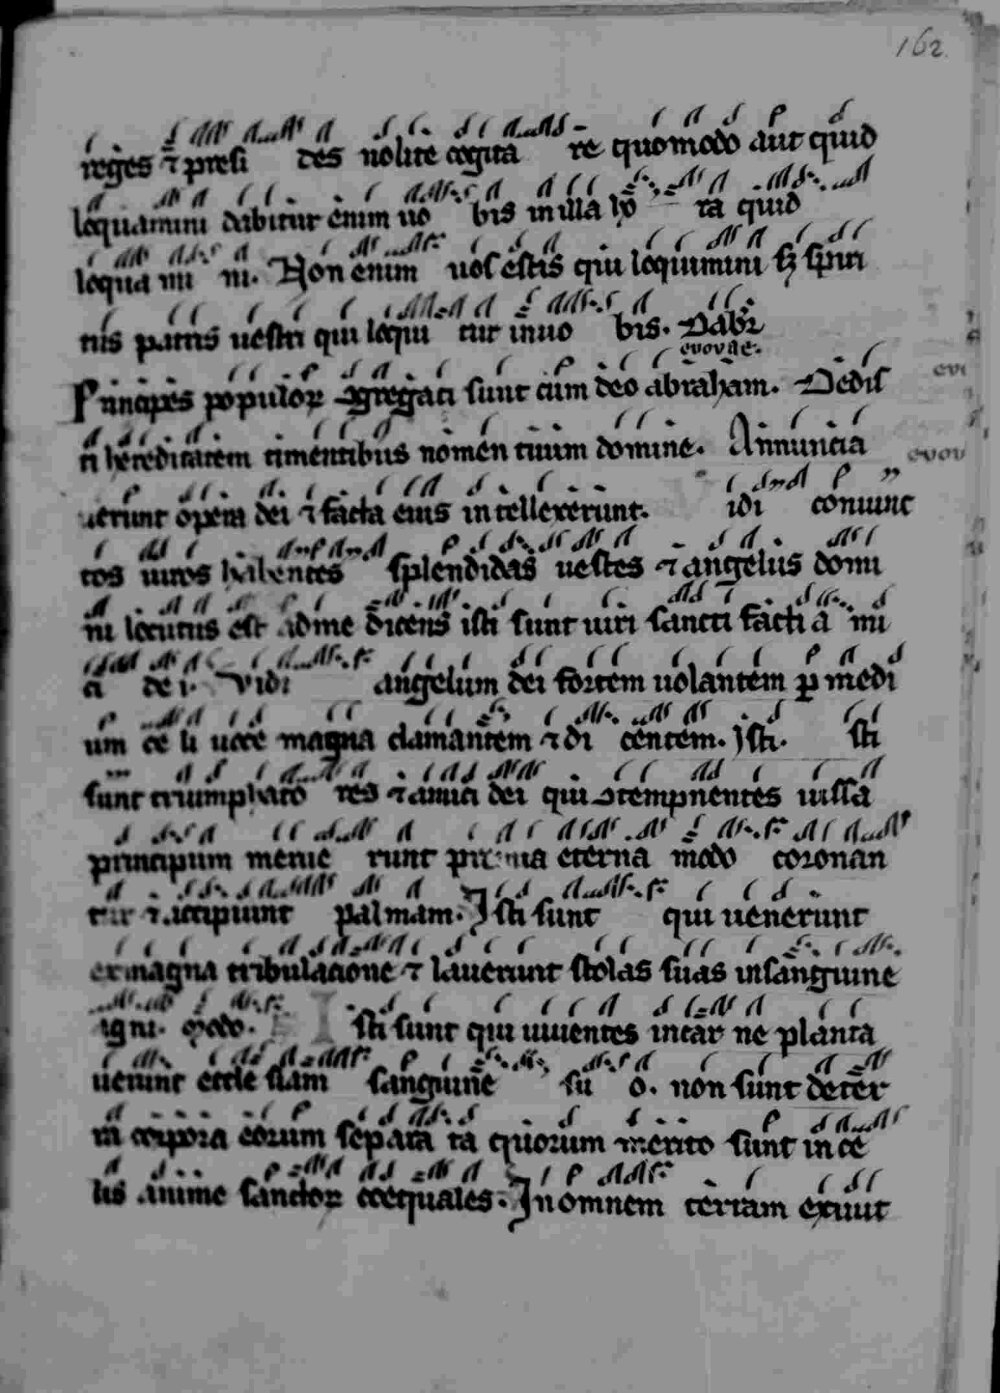 162.
reges ⁊ presi des nolite cogita re quomodo aut quid
loquamini dabitur enim uo bis in illa ho ra quid
loqua mi ni. Non enim uos estis qui loquimini sꝫ spiri
tus patris uestri qui loqui tur in uo bis. Dabit
euouae.
Principes populoꝝ ꝯgregati sunt cum deo abraham. Dedis
ti hereditatem timentibus nomen tuum domine. Annuncia
uerunt opera dei ⁊ facta eius intellexerunt. idi coniunc
tos uiros habentes splendidas uestes ⁊ angelus domi
ni locutus est ad me dicens isti sunt uiri sancti facti a mi
ci de i. Vidi angelum dei fortem uolantem ꝑ medi
um ce li uoce magna clamantem ⁊ di centem. Isti. sti
sunt triumphato res ⁊ amici dei qui ꝯtempnentes iussa
principum merue runt premia eterna modo coronan
tur ⁊ accipiunt palmam. Isti sunt qui uenerunt
ex magna tribulatione ⁊ lauerunt stolas suas in sanguine
agni. Modo. Isti sunt qui uiuentes in car ne planta
uerunt eccle siam sanguine su o. non sunt deter
ra corpora eorum separa ta quorum merito sunt in ce
lis anime sanctoꝝ coequales. In omnem terram exiuit